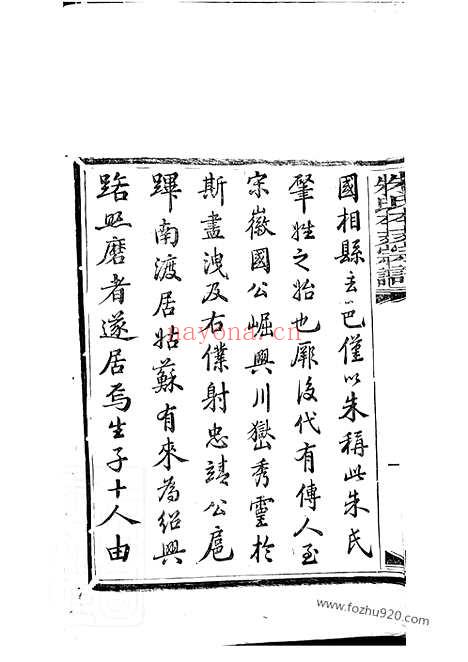 國相縣去邑僅以朱稱此朱氏
肇姓之始也厥後代有傳人至
宋徽國公崛興川嶽秀靈於
斯盡洩及右僕射忠靖公扈
蹕南渡居姑蘇有來為紹興
路照磨者遂居焉生子十人由
一
nayona.cn
www.fozhu920.com